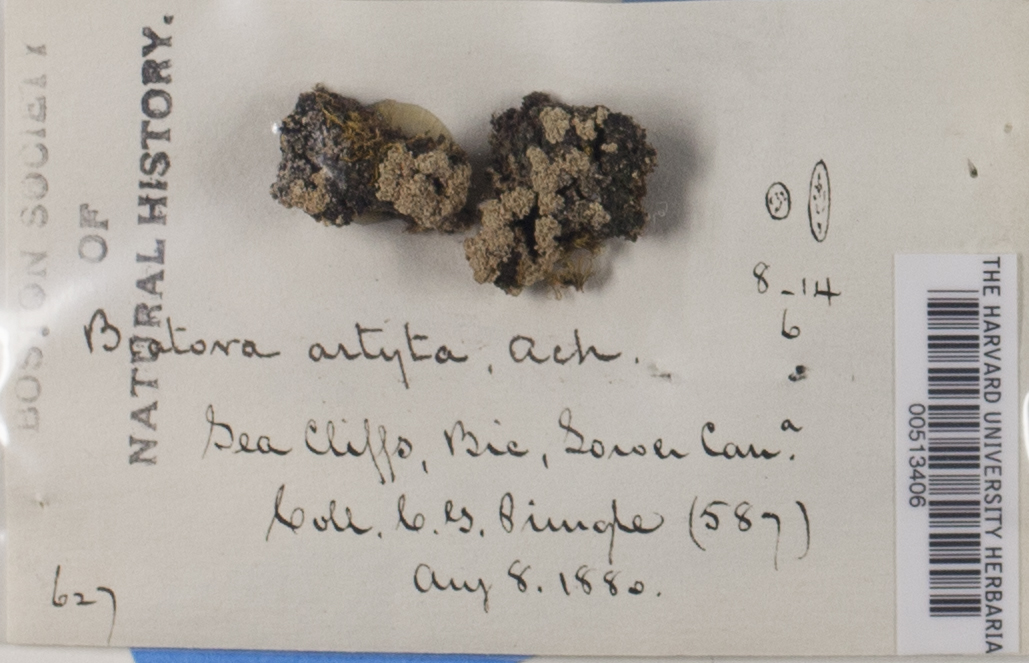 BOSTON SOCIETY
OF
NATURAL HISTORY.
8-14
6
Biatora artyta, Ach.
Sea Cliffs, Bic, Lower Canᵃ.
Coll. C. G. Pringle (587)
Aug 8. 1880.
627
THE HARVARD UNIVERSITY HERBARIA
00513406